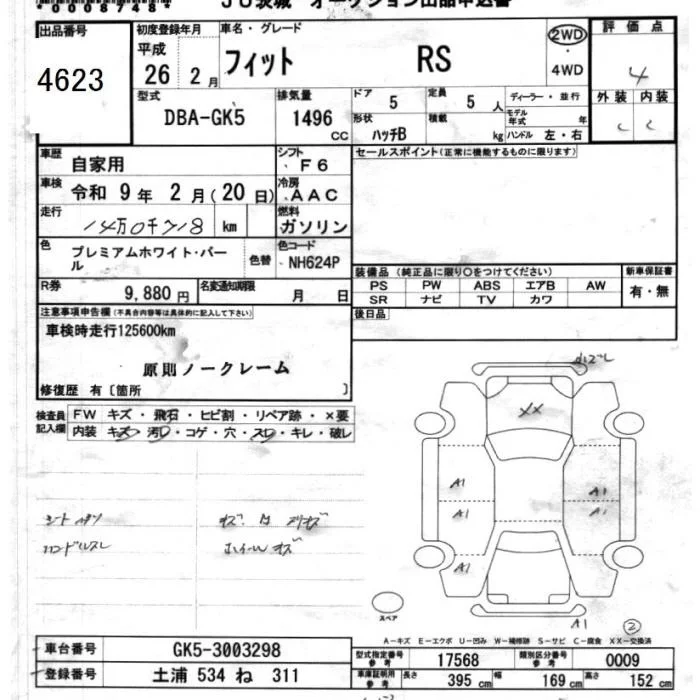 JU茨城 オークション出品申込書
出品番号 4623
初度登録年月 平成 26年 2月
車名・グレード フィット RS
2WD・4WD
評価点 4
型式 DBA-GK5
排気量 1496 CC
ドア 5
定員 5人
ディーラー・並行
外装 C 内装 C
形状 ハッチB
積載 kg
モデル年式 年
ハンドル 左・右
車歴 自家用
シフト F6
セールスポイント(正常に機能するものに限ります)
車検 令和 9年 2月(20日)
冷房 AAC
走行 14万0千718 km
燃料 ガソリン
色 プレミアムホワイト・パール
色替
色コード NH624P
装備品 (純正品に限り○をつけてください)
新車保証書
PS PW ABS エアB AW
有・無
SR ナビ TV カワ
R券 9,880円
名変通知期限 月 日
後日品
注意事項申告欄(不具合内容等は具体的に記入して下さい)
車検時走行125600km
原則ノークレーム
修復歴 有〔箇所 〕
検査員記入欄
FW キズ・飛石・ヒビ割・リペア跡・×要
内装 キズ・汚レ・コゲ・穴・スレ・キレ・破レ
XX
A1
A1
A1
A1
A1
A1
ハンドルスレ
ホイールキズ
スペア
②
A-キズ E-エクボ U-凹み W-補修跡 S-サビ C-腐食 XX-交換済
車台番号 GK5-3003298
型式指定番号 参考 17568
類別区分番号 参考 0009
登録番号 土浦 534 ね 311
車庫証明用 参考 長さ 395cm 幅 169cm 高さ 152cm